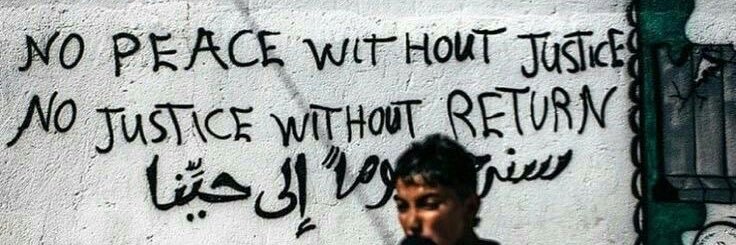 NO PEACE WITHOUT JUSTICE
NO JUSTICE WITHOUT RETURN
إلى حيِّنا